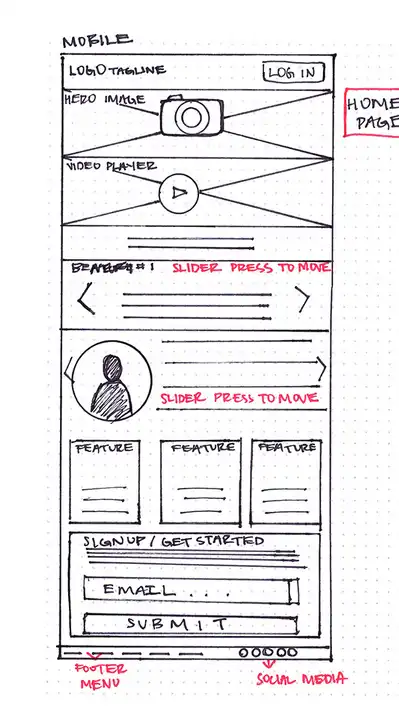 MOBILE
LOGO TAGLINE
LOG IN
HERO IMAGE
HOME
PAGE
VIDEO PLAYER
#1 SLIDER PRESS TO MOVE
SLIDER PRESS TO MOVE
FEATURE FEATURE FEATURE
SIGNUP / GET STARTED
EMAIL...
SUBMIT
FOOTER
MENU
SOCIAL MEDIA